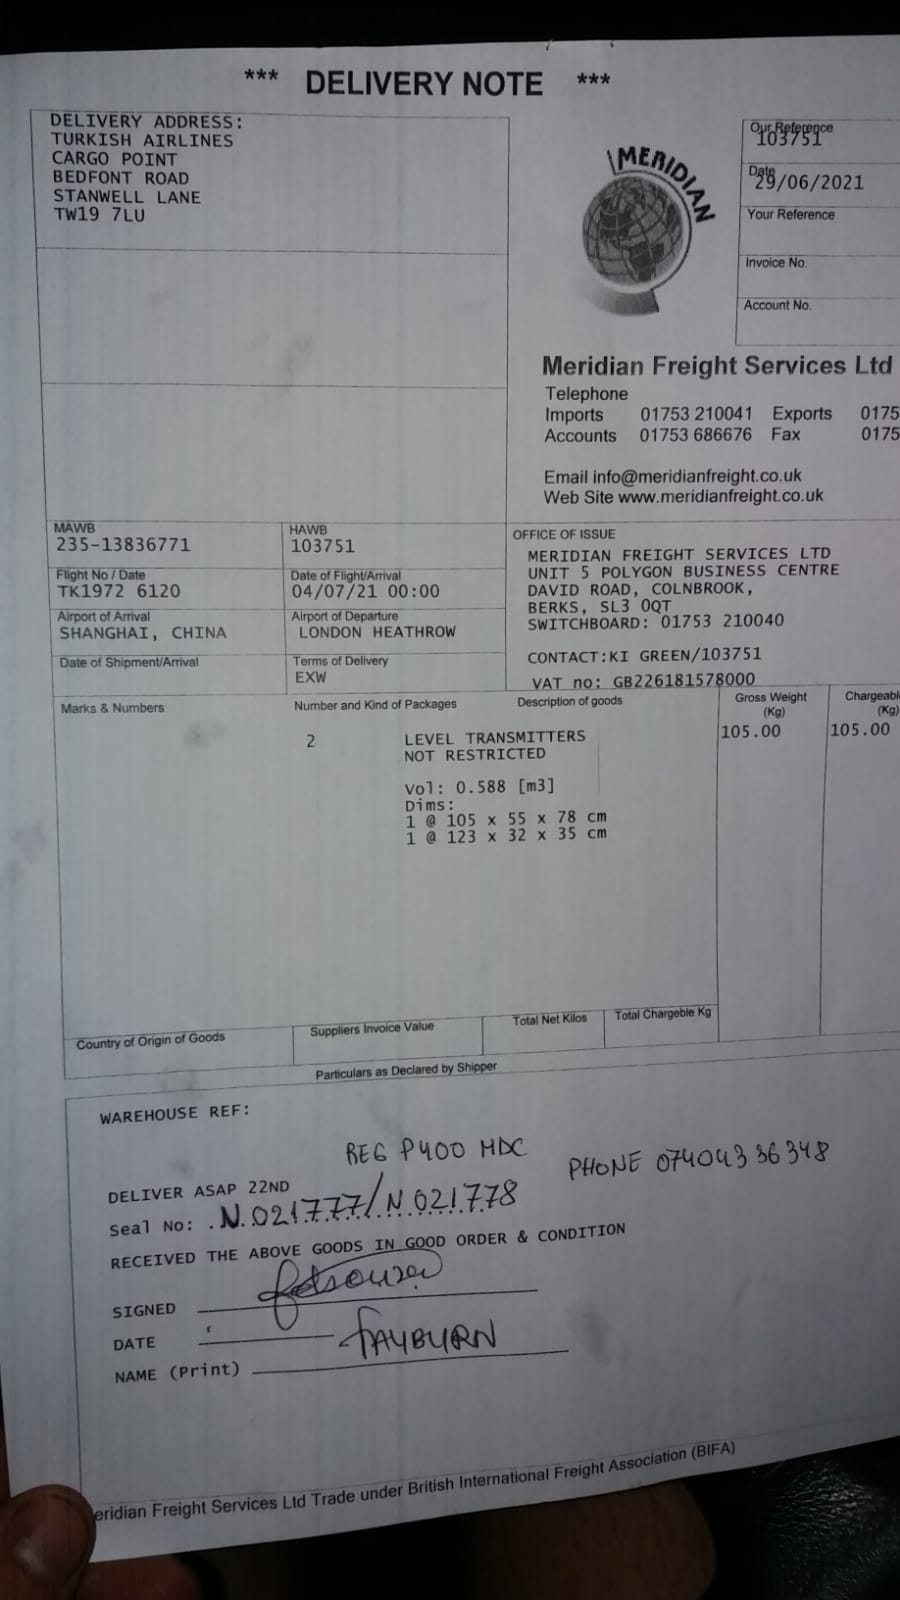 *** DELIVERY NOTE ***
DELIVERY ADDRESS:
TURKISH AIRLINES
CARGO POINT
BEDFONT ROAD
STANWELL LANE
TW19 7LU
MERIDIAN
Our Reference
103751
Date
29/06/2021
Your Reference
Invoice No.
Account No.
Meridian Freight Services Ltd
Telephone
Imports 01753 210041 Exports 0175
Accounts 01753 686676 Fax 0175
Email info@meridianfreight.co.uk
Web Site www.meridianfreight.co.uk
MAWB
235-13836771
HAWB
103751
Flight No / Date
TK1972 6120
Date of Flight/Arrival
04/07/21 00:00
Airport of Arrival
SHANGHAI, CHINA
Airport of Departure
LONDON HEATHROW
Date of Shipment/Arrival
Terms of Delivery
EXW
OFFICE OF ISSUE
MERIDIAN FREIGHT SERVICES LTD
UNIT 5 POLYGON BUSINESS CENTRE
DAVID ROAD, COLNBROOK,
BERKS, SL3 0QT
SWITCHBOARD: 01753 210040
CONTACT:KI GREEN/103751
VAT no: GB226181578000
Marks & Numbers
Number and Kind of Packages
Description of goods
Gross Weight
(Kg)
Chargeabl
(Kg)
2 LEVEL TRANSMITTERS 105.00 105.00
NOT RESTRICTED
Vol: 0.588 [m3]
Dims:
1 @ 105 x 55 x 78 cm
1 @ 123 x 32 x 35 cm
Country of Origin of Goods
Suppliers Invoice Value
Total Net Kilos
Total Chargeble Kg
Particulars as Declared by Shipper
WAREHOUSE REF:
REG P400 MDC
PHONE 07404336348
DELIVER ASAP 22ND
Seal No: N.021777/N.021778
RECEIVED THE ABOVE GOODS IN GOOD ORDER & CONDITION
SIGNED
DATE
FAYBURN
NAME (Print)
eridian Freight Services Ltd Trade under British International Freight Association (BIFA)